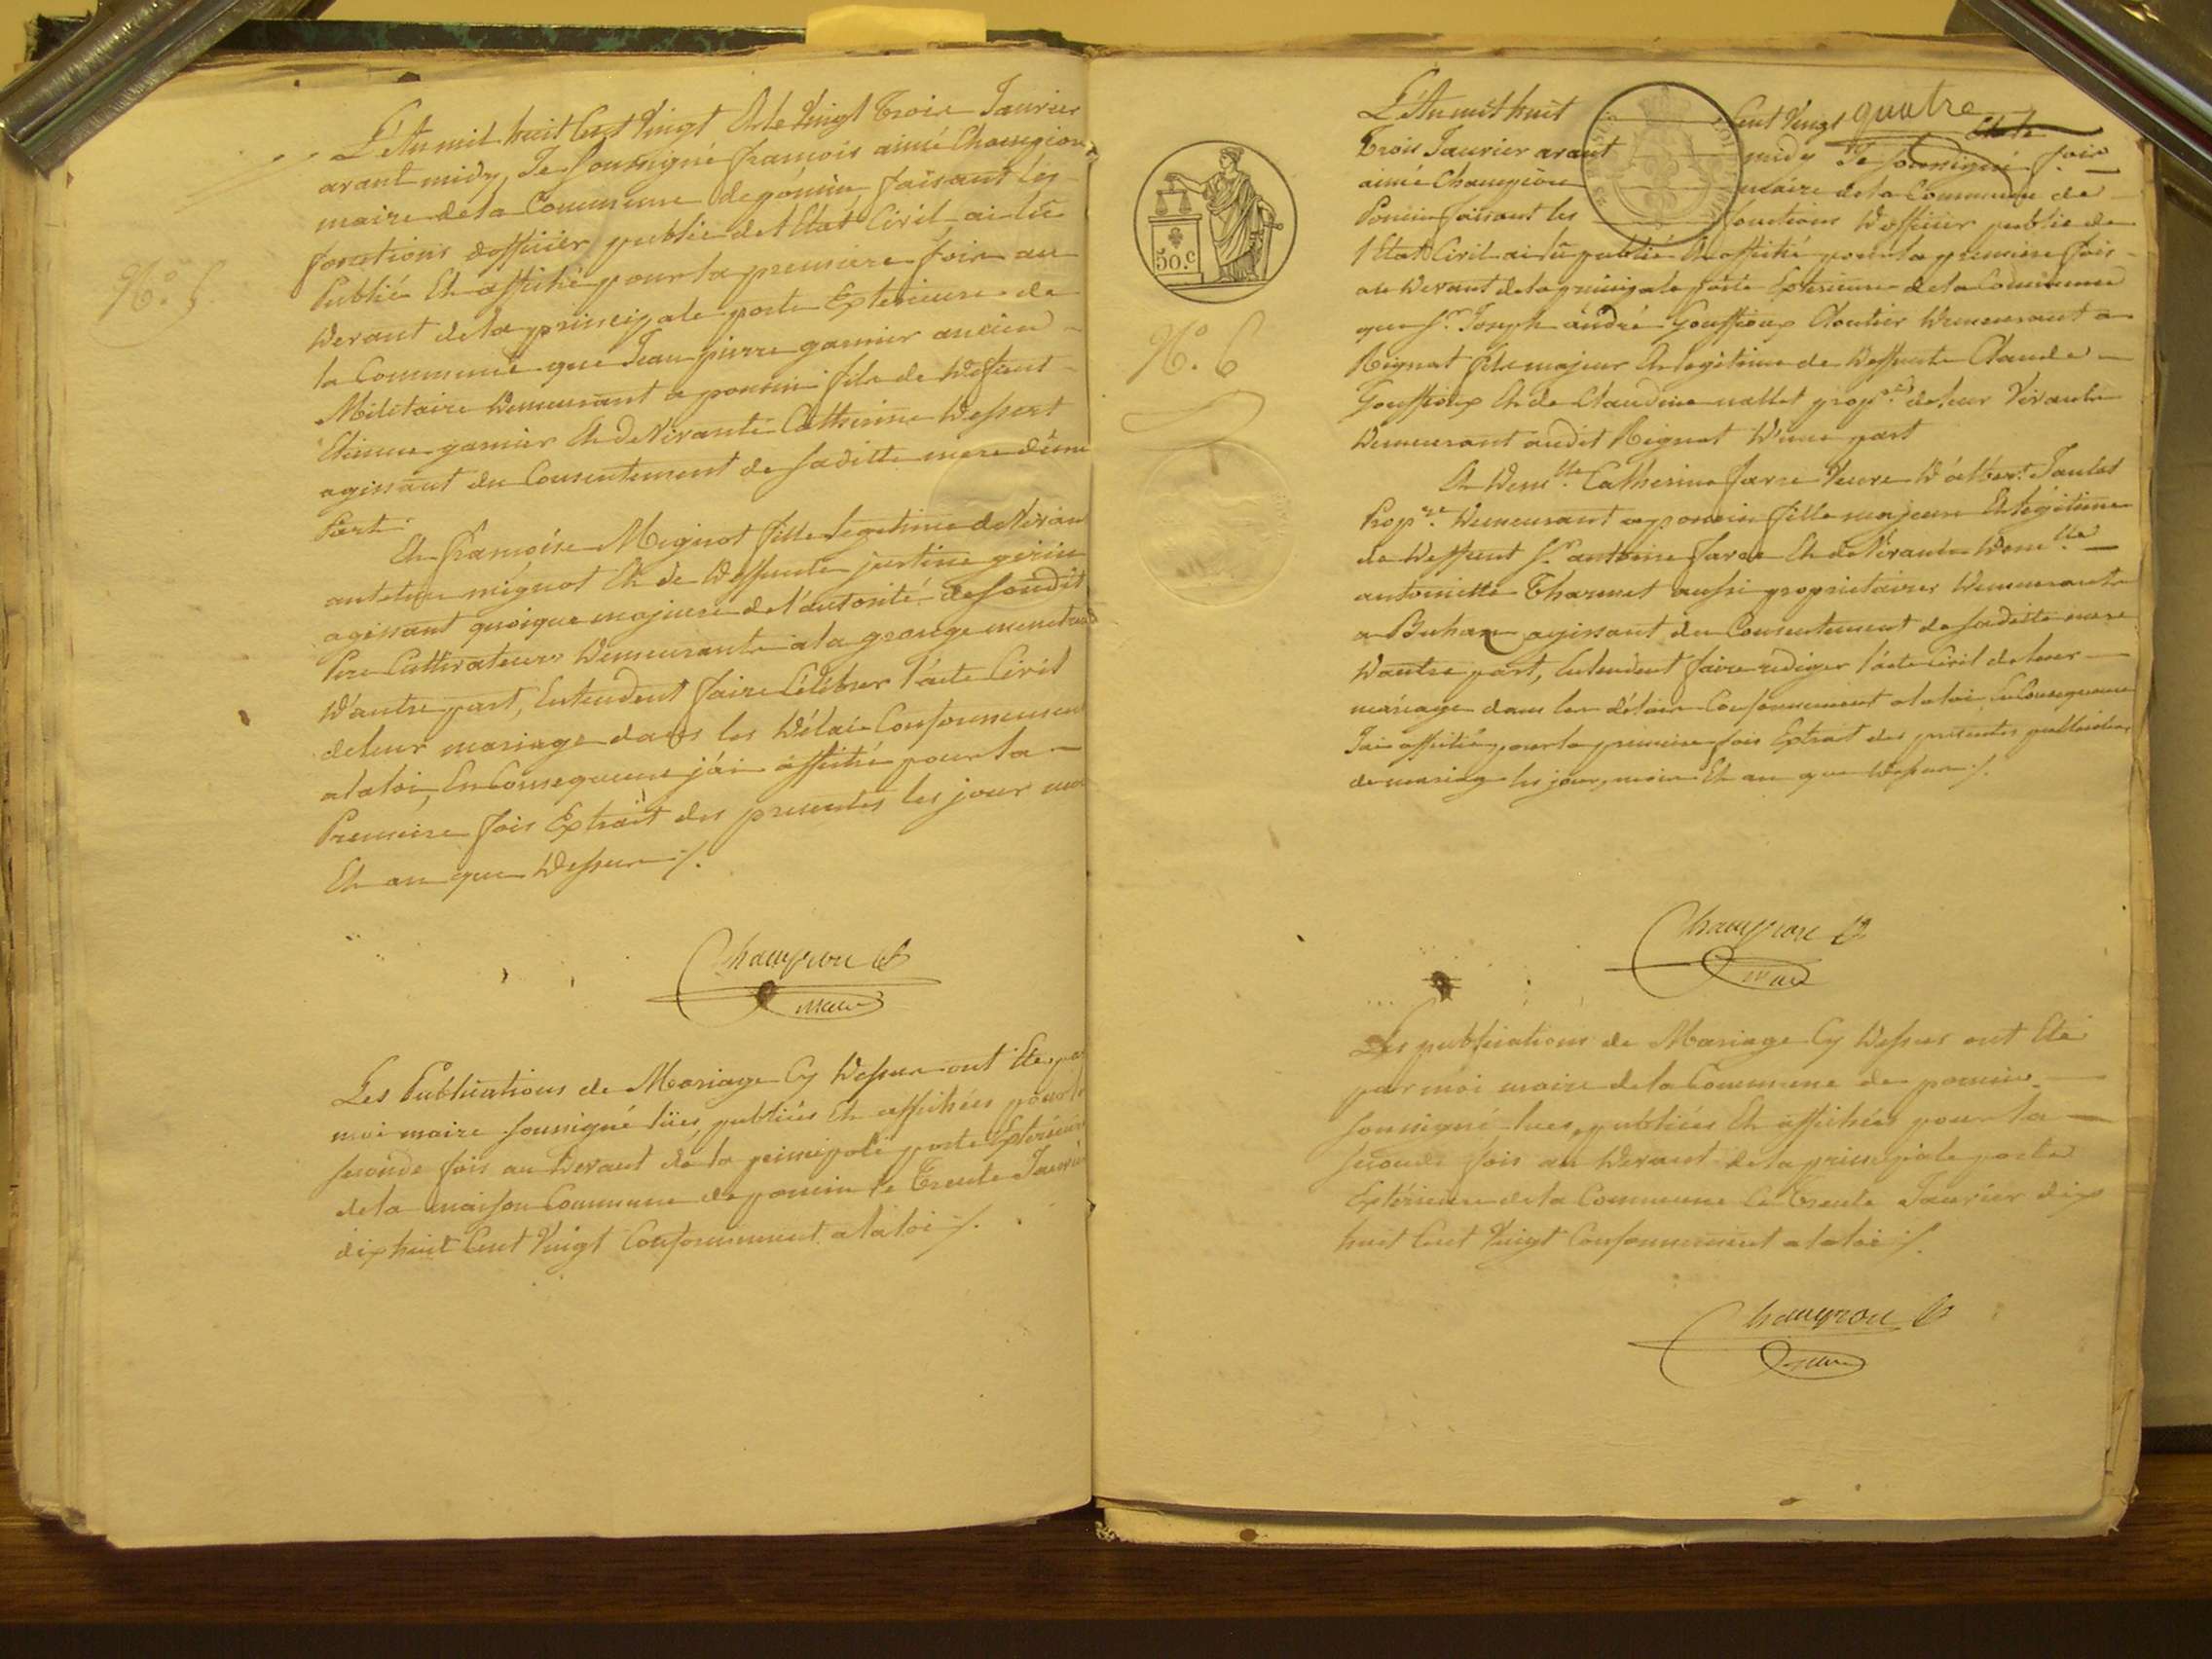 N.° 5
L'An mil huit Cent Vingt Et le Vingt Trois Janvier
avant midy, Je Soussigné françois aimé Champion
maire de la Commune de poncin, faisant les
fonctions d'officier public de l'Etat Civil ai lû
Publié Et affiché pour la premiere fois au
devant de la principale porte Exterieure de
la Commune que Jean pierre garnier ancien
Militaire demeurant a poncin fils de defunt
Etienne garnier Et de Vivante Catherine
agissant du Consentement de saditte mere d'une
Part.
Et françoise Mignot fille legitime de Vivan
mignot Et de deffunte justine
agissant quoique majeure de l'autorité de sondit
Pere Cultivateurs demeurante a la grange
d'autre part, Entendent faire Célébrer l'acte Civil
de leur mariage dans les délais Conformement
a la loi, En Consequence j'ai affiché pour la
Premiere fois Extrait des presentes les jour moi
Et an que dessus ./.
Champion
maire
Les Publications de Mariage Cy dessus ont Ete par
moi maire soussigné lües, publiées Et affichées pour la
seconde fois au devant de la principale porte Exterieure
de la maison Commune de poncin le Trente Janvier
dix huit Cent Vingt Conformement a la loi ./.
50.c
N.° 6
L'An mil huit Cent Vingt quatre Et le
Trois Janvier avant midy Je soussigné
aimé Champion maire de la Commune de
Poncin faisant les fonctions d'officier public de
l'Etat Civil ai lû publié Et affiché pour la premiere fois
au devant de la principale porte Exterieure de la Commune
que S.r Joseph andré Gouffioux Cloutier demeurant a
Rignat fils majeur Et legitime de deffunt Claude
Gouffioux Et de Claudine nallet prop.res de leur Vivante
demeurant audit Rignat d'une part
Et dem.lle Catherine farre Veuve d'albert
Prop.re demeurant a poncin fille majeure Et legitime
de deffunt S.r antoine farre Et de Vivante dem.lle
antoinette Tharmet aussi proprietaires demeurante
a Buhan agissant du Consentement de saditte mere
d'autre part, Entendent faire rediger l'acte Civil de leur
mariage dans les délais Conformement a la loi, En Consequence
J'ai affiché pour la premiere fois Extrait des presentes publications
de mariage les jour, mois Et an que dessus ./.
Champion
maire
Les publications de Mariage Cy dessus ont Eté
par moi maire de la Commune de poncin
soussigné lues, publiées Et affichées pour la
seconde fois au devant de la principale porte
Extérieure de la Commune le Trente Janvier dix
huit Cent Vingt Conformement a la loi ./.
Champion
maire